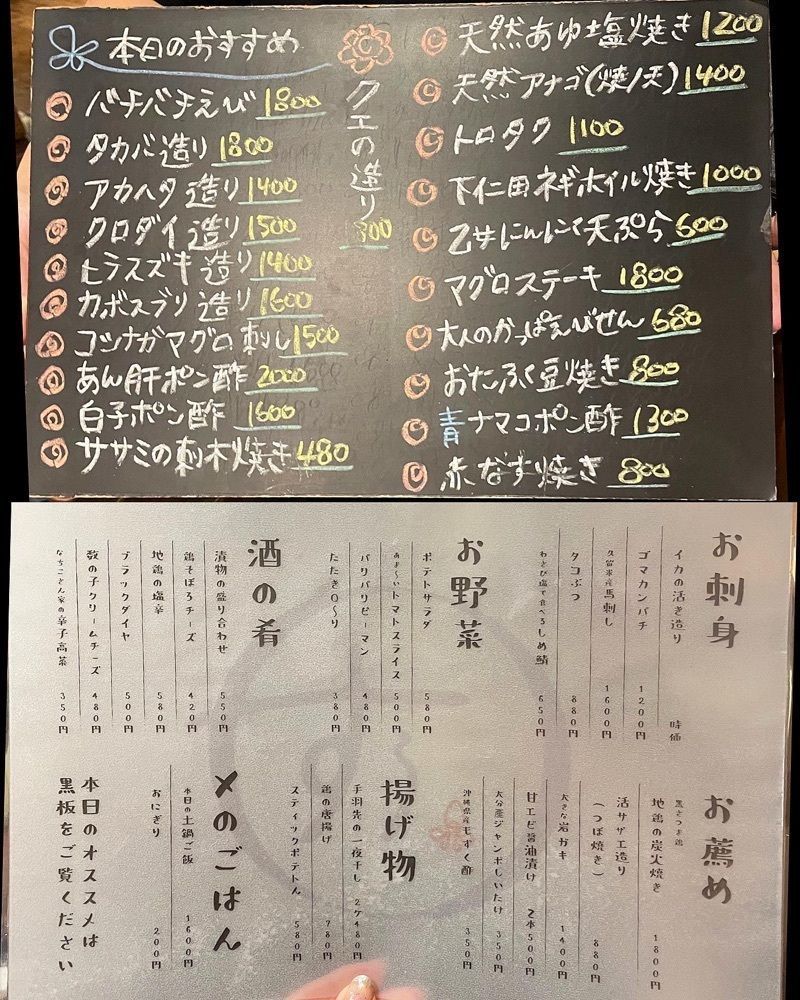 本日のおすすめ
バチバチえび 1800
タカバ造り 1800
アカハタ造り 1400
クロダイ造り 1500
ヒラスズキ造り 1400
カボスブリ造り 1600
コシナガマグロ刺し 1500
あん肝ポン酢 2000
白子ポン酢 1600
ササミの刺木焼き 480
クエの造り
天然あゆ塩焼き 1200
天然アナゴ(焼/天) 1400
トロタク 1100
下仁田ネギホイル焼き 1000
乙サにんにく天ぷら 600
マグロステーキ 1800
大人のかっぱえびせん 680
おたふく豆焼き 800
青ナマコポン酢 1300
赤なす焼き 800
お刺身
イカの活き造り 時価
ゴマカンパチ 1200円
久留米産馬刺し 1600円
タコぶつ 880円
わさび塩で食べるしめ鯖 650円
お野菜
ポテトサラダ 580円
あま〜いトマトスライス 500円
パリパリピーマン 480円
たたきQ〜り 380円
酒の肴
漬物の盛り合わせ 550円
鶏そぼろチーズ 420円
地鶏の塩辛 580円
ブラックダイヤ 500円
数の子クリームチーズ 480円
なちこさん家の辛子高菜 350円
お薦め
黒さつま鶏
地鶏の炭火焼き 1800円
活サザエ造り
(つぼ焼き) 880円
大きな岩ガキ 1400円
甘エビ醤油漬け 2本500円
大分産ジャンボしいたけ 350円
沖縄県産もずく酢 350円
揚げ物
手羽先の一夜干し 2ケ480円
鶏の唐揚げ 780円
スティックポテトん 580円
〆のごはん
本日の土鍋ご飯 1600円
おにぎり 200円
本日のオススメは
黒板をご覧ください